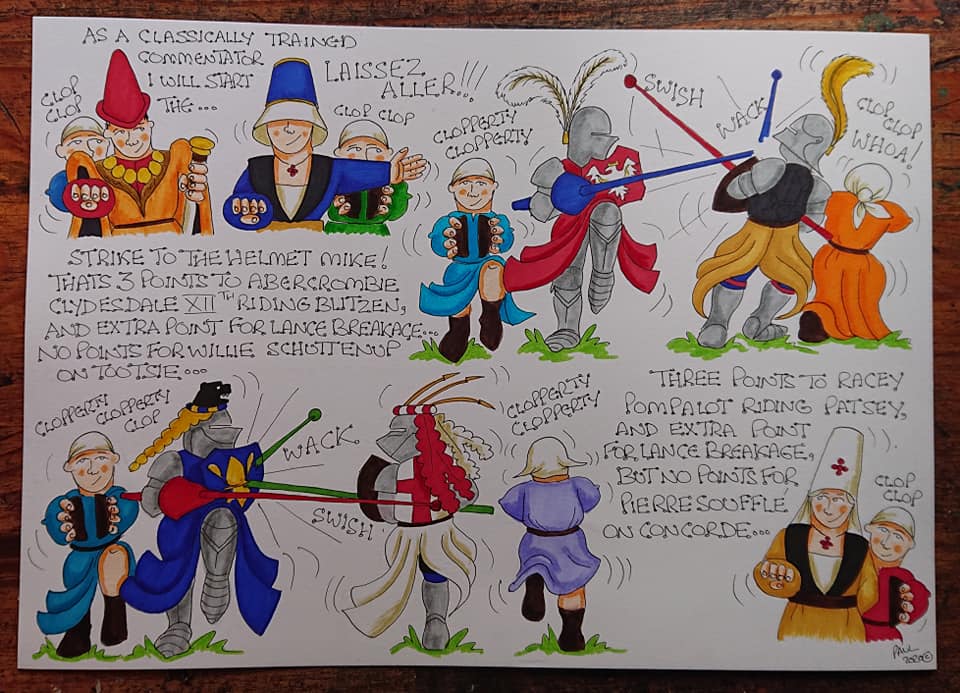 AS A CLASSICALLY TRAINED
COMMENTATOR
I WILL START
THE...
CLOP
CLOP
LAISSEZ
ALLER!!!
CLOP CLOP
CLOPPERTY
CLOPPERTY
SWISH
WACK
CLOP
CLOP
WHOA!
STRIKE TO THE HELMET MIKE!
THATS 3 POINTS TO ABERCROMBIE
CLYDESDALE XII TH RIDING BLITZEN,
AND EXTRA POINT FOR LANCE BREAKAGE...
NO POINTS FOR WILLIE SCHUTTENUP
ON TOOTSIE...
CLOPPERTY
CLOPPERTY
CLOP
WACK
SWISH
CLOPPERTY
CLOPPERTY
THREE POINTS TO RACEY
POMPALOT RIDING PATSEY,
AND EXTRA POINT
FOR LANCE BREAKAGE,
BUT NO POINTS FOR
PIERRE SOUFFLÉ
ON CONCORDE...
CLOP
CLOP
PAUL
2020©